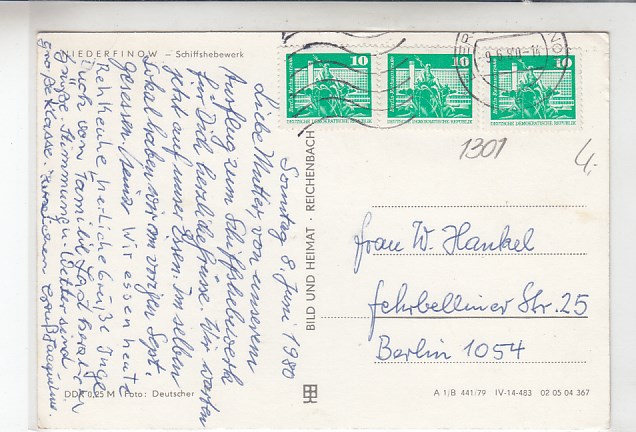 NIEDERFINOW – Schiffshebewerk
Sonntag 8 Juni 1980
Liebe Mutter, von unserem
Ausflug zum Schiffshebewerk
für Dich herzliche Grüsse. Wir warten
jetzt auf unser Essen. Im selben
Lokal haben wir am vorigen Sept.
gegessen. Heinz
Wir essen heute
Rehkeule herzliche Grüße Inge
Auch von Familie
Grüße. Stimmung u. Wetter sind
große Klasse.
DDR 0,25 M Foto: Deutscher
BILD UND HEIMAT · REICHENBACH
10
10
10
DEUTSCHE DEMOKRATISCHE REPUBLIK
DEUTSCHE DEMOKRATISCHE REPUBLIK
DEUTSCHE DEMOKRATISCHE REPUBLIK
1301
4,-
Frau W. Hankel
Fehrbelliner Str. 25
Berlin 1054
A 1/B 441/79 IV-14-483 02 05 04 367